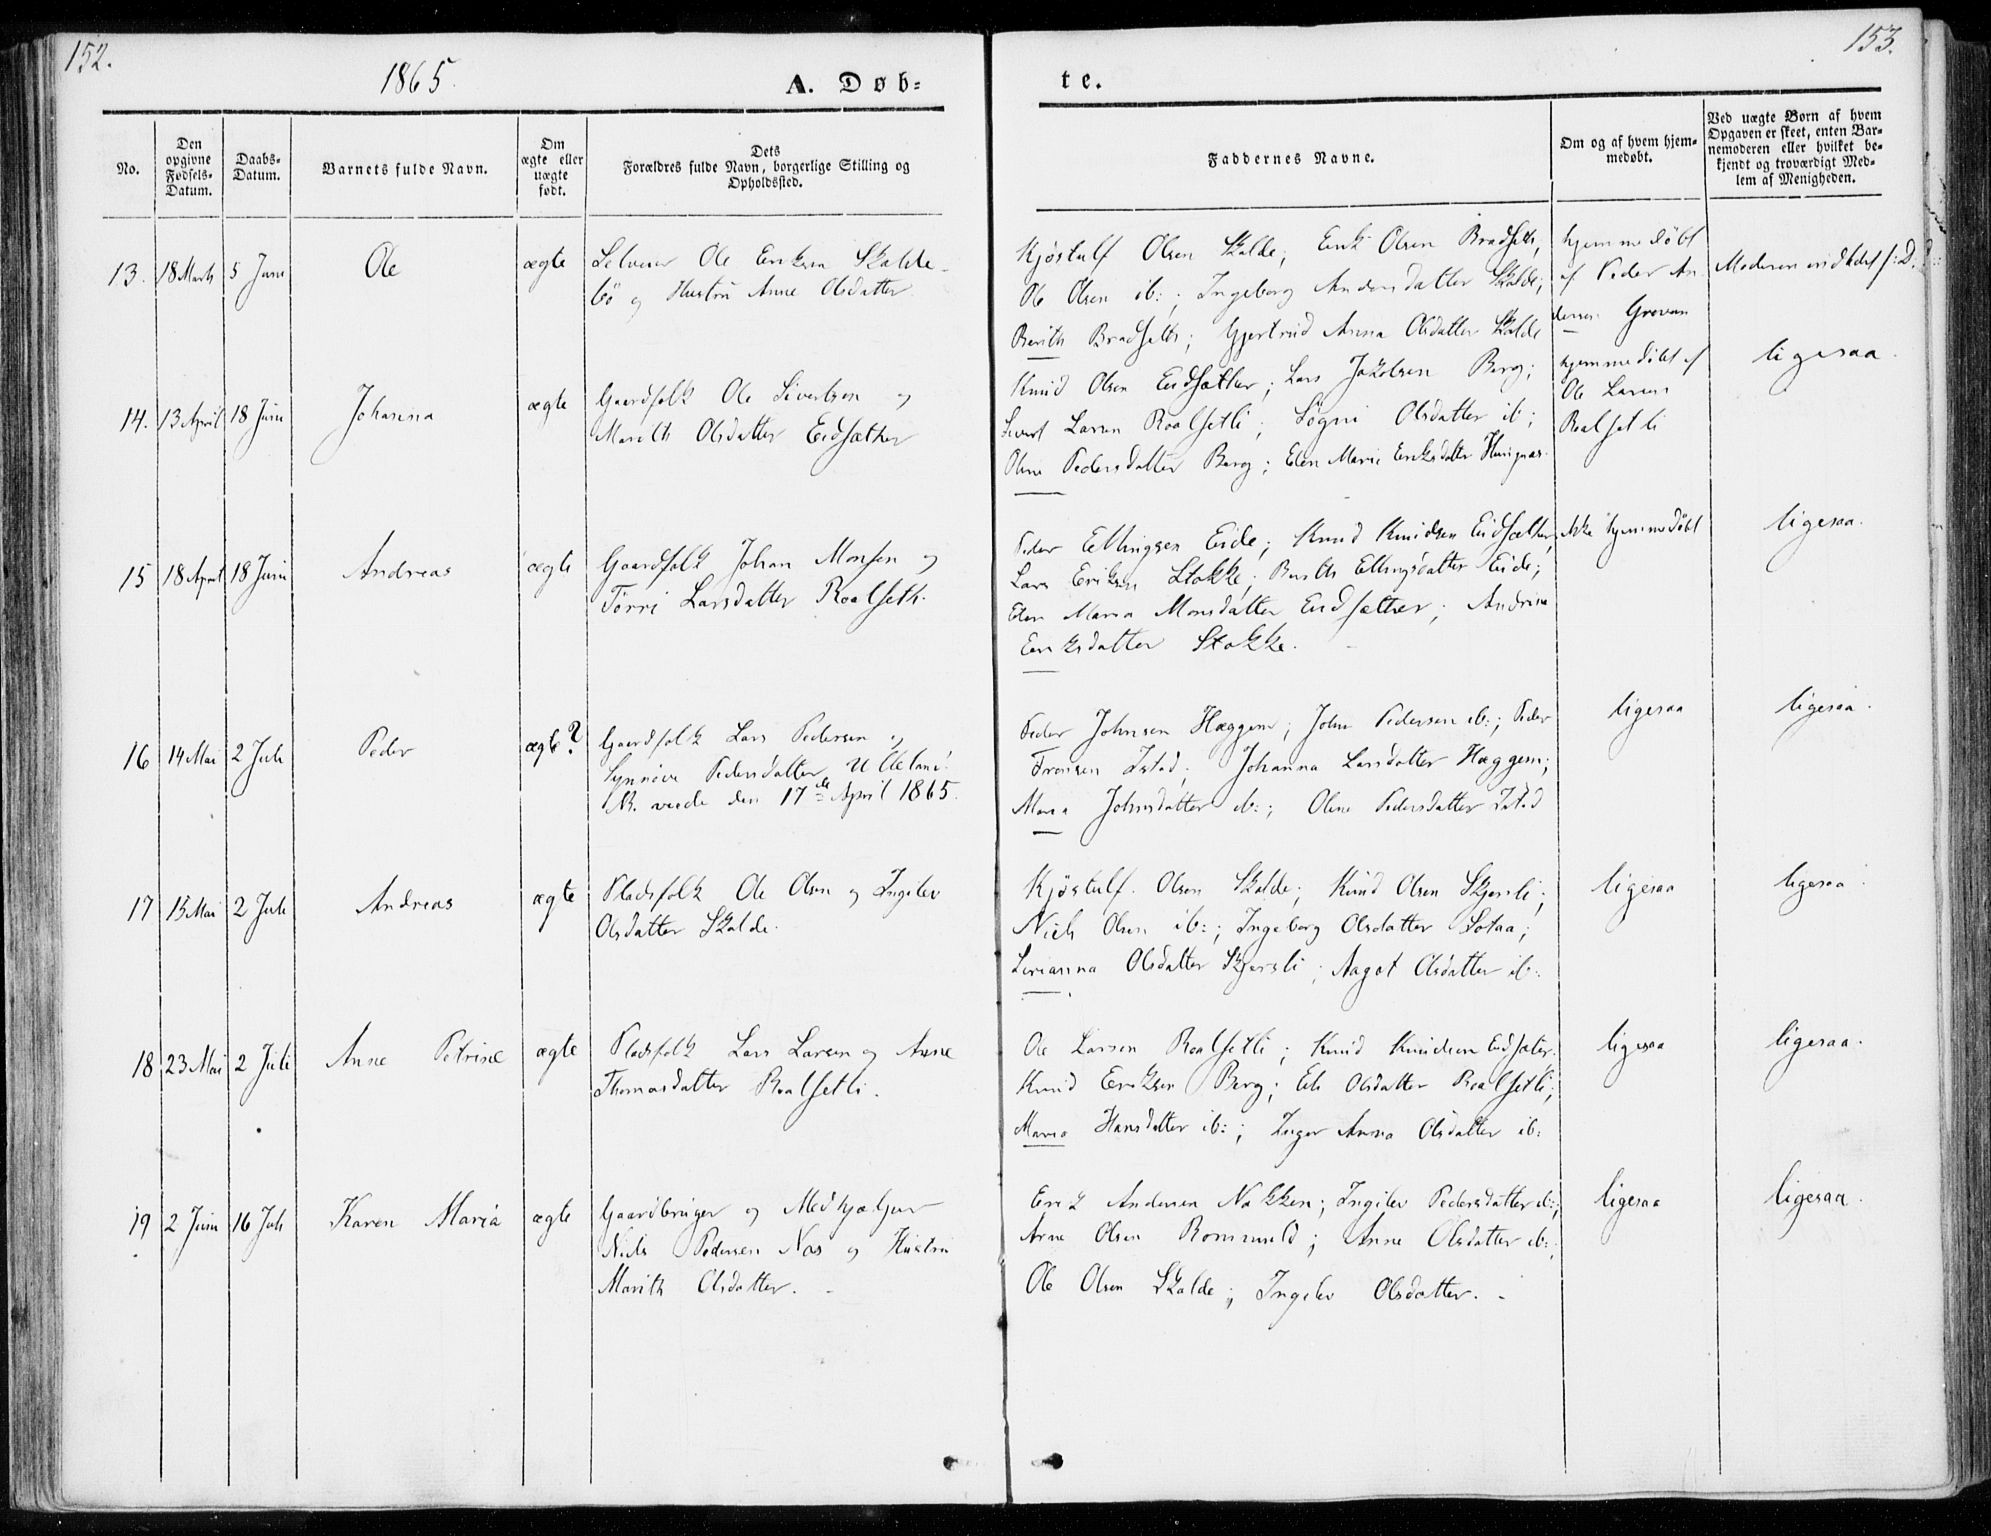 152.
1865.
A. Døb-
te.
153.
No.
Den opgivne Fødsels-Datum.
Daabs-Datum.
Barnets fulde Navn.
Om ægte eller uægte født.
Dets Forældres fulde Navn, borgerlige Stilling og Opholdssted.
Faddernes Navne.
Om og af hvem hjem-
medøbt.
Ved uægte Børn af hvem
Opgaven er skeet, enten Bar-
nemoderen eller hvilket be-
kjendt og troværdigt Med-
lem af Menigheden.
13. 18 Marts 5 Juni Ole ægte
Selveier Ole Eriksen Skalde-
bø og Hustru Anne Olsdatter
Kjøstulf Olsen Skalde; Erik Olsen Bradseth,
Ole Olsen ib:; Ingeborg Andersdatter Skalde;
Berith Bradseth; Gjertrud Anna Olsdatter Skalde
hjemmedøbt
af Peder An-
dersen Grovan
Moderen indledet f: D.
14. 13 April 18 Juni Johanna ægte
Gaardfolk Ole Sivertsen og
Marith Olsdatter Eidsæther
Knud Olsen Eidsæther; Lars Jakobsen Berg;
Sivert Larsen Roalsetli; Søgni Olsdatter ib:;
Oline Pedersdatter Berg; Elen Marie Eriksdatter
hjemmedøbt af
Ole Larsen
Roalsetli
ligesaa.
15 18 April 18 Juni Andreas ægte
Gaardfolk Johan Monsen og
Tørri Larsdatter Roalseth.
Peder Ellingsen Eide; Knud Knudsen Eidsæther,
Lars Eriksen Stokke; Berith Ellingsdatter Eide;
Elen Maria Monsdatter Eidsæther; Andrine
Eriksdatter Stokke.
ikke hjemmedøbt
ligesaa.
16 14 Mai 2 Juli Peder ægte?
Gaardfolk Lars Pedersen og
Synnøve Pedersdatter Ulleland.
NB. viede den 17de April 1865.
Peder Johnsen Hæggem; John Pedersen ib:; Peder
Fronsen Istad; Johanna Larsdatter Hæggem;
Maria Johnsdatter ib:; Oline Pedersdatter Istad
ligesaa
ligesaa.
17 15 Mai 2 Juli Andreas ægte
Pladsfolk Ole Olsen og Ingelev
Olsdatter Skalde.
Kjøstulf Olsen Skalde; Knud Olsen Skjersli;
Niels Olsen ib:; Ingeborg Olsdatter Sotaa;
Serianna Olsdatter Skjersli; Aagot Olsdatter ib:
ligesaa
ligesaa.
18 23 Mai 2 Juli Anne Petrine ægte
Pladsfolk Lars Larsen og Anne
Thomasdatter Roalsetli.
Ole Larsen Roalsetli; Knud Knudsen Eidsæter.
Knud Eriksen Berg; Eli Olsdatter Roalsetli;
Maria Hansdatter ib:; Inger Anna Olsdatter ib:
ligesaa
ligesaa.
19 2 Juni 16 Juli Karen Maria ægte
Gaardbruger og Medhjælper
Niels Pedersen Nas og Hustru
Marith Olsdatter.
Erik Andersen Nakken; Ingilev Pedersdatter ib:;
Arne Olsen Romuuld; Anne Olsdatter ib:;
Ole Olsen Skalde; Ingelev Olsdatter.
ligesaa
ligesaa.